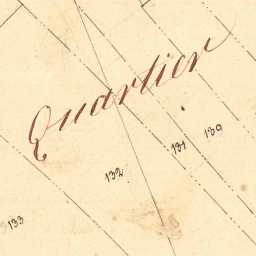 Quartier
130
131
132
133